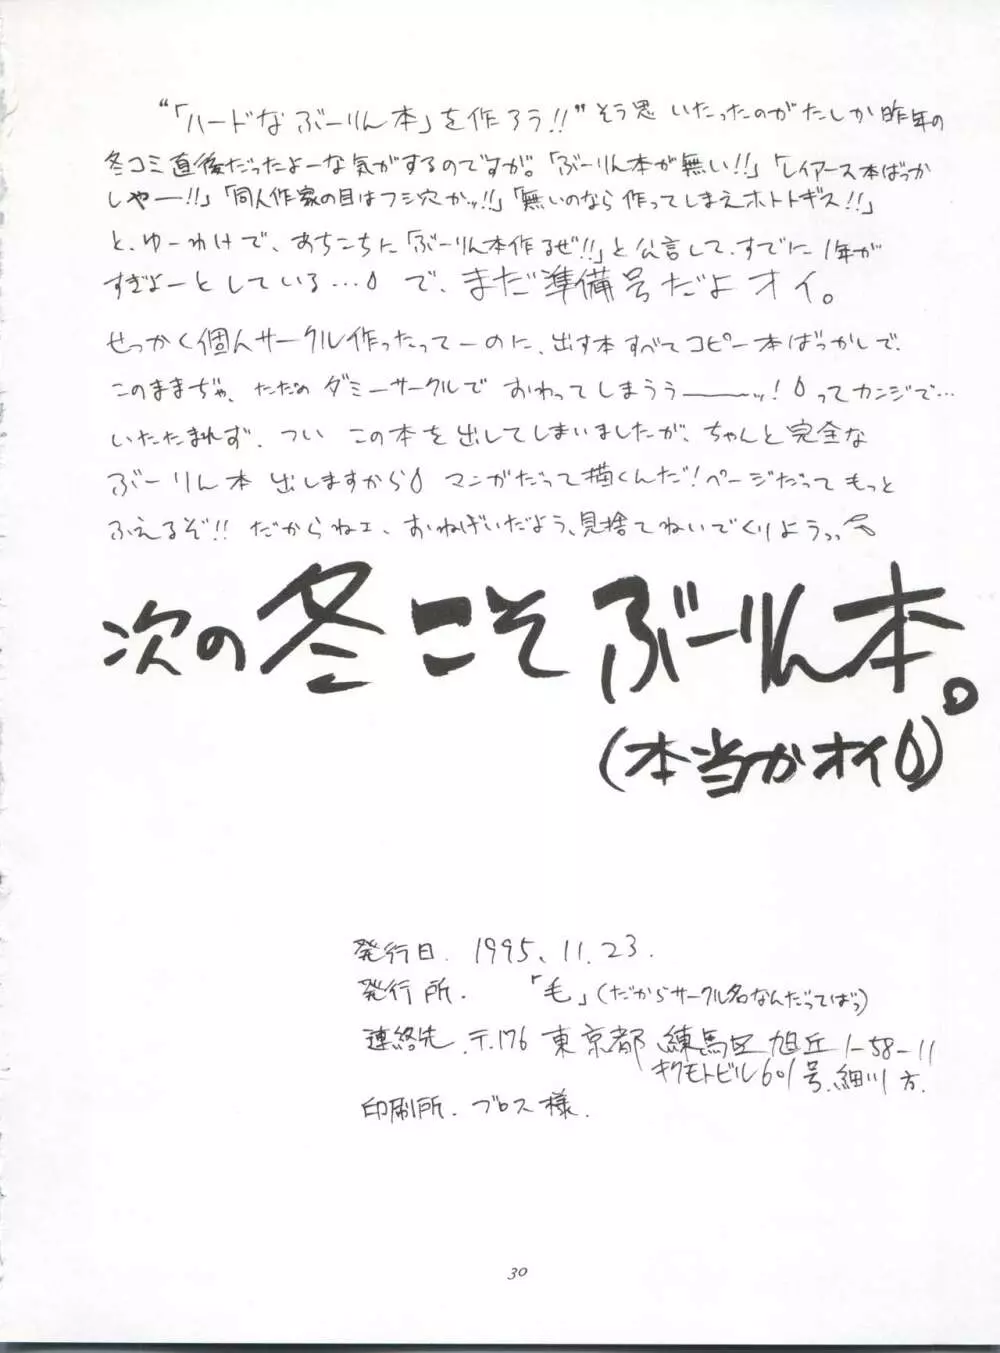 “「ハードなぶーりん本」を作ろう!!”そう思いたったのがたしか昨年の
冬コミ直後だったよーな気がするのですが。「ぶーりん本が無い!!」「レイアース本ばっか
しやー!!」「同人作家の目はフシ穴かッ!!」「無いのなら作ってしまえホトトギス!!」
と、ゆーわけで、あちこちに「ぶーりん本作るぜ!!」と公言して、すでに1年が
すぎよーとしている…で、まだ準備号だよオイ。
せっかく個人サークル作ったってーのに、出す本すべてコピー本ばっかしで、
このままぢゃ、ただのダミーサークルでおわってしまううーーッ!ってカンジで…
いたたまれず、ついこの本を出してしまいましたが、ちゃんと完全な
ぶーりん本出しますから マンガだって描くんだ!ページだってもっと
ふえるぞ!!だからねェ、おねげいだよう、見捨てねいでくりようっっ
次の冬こそぶーりん本。
(本当かオイ)
発行日. 1995、11.23.
発行所. 「毛」(だからサークル名なんだってばっ)
連絡先.〒176 東京都練馬区旭丘1-58-11
キクモトビル601号.細川方.
印刷所. ブロス様.
30